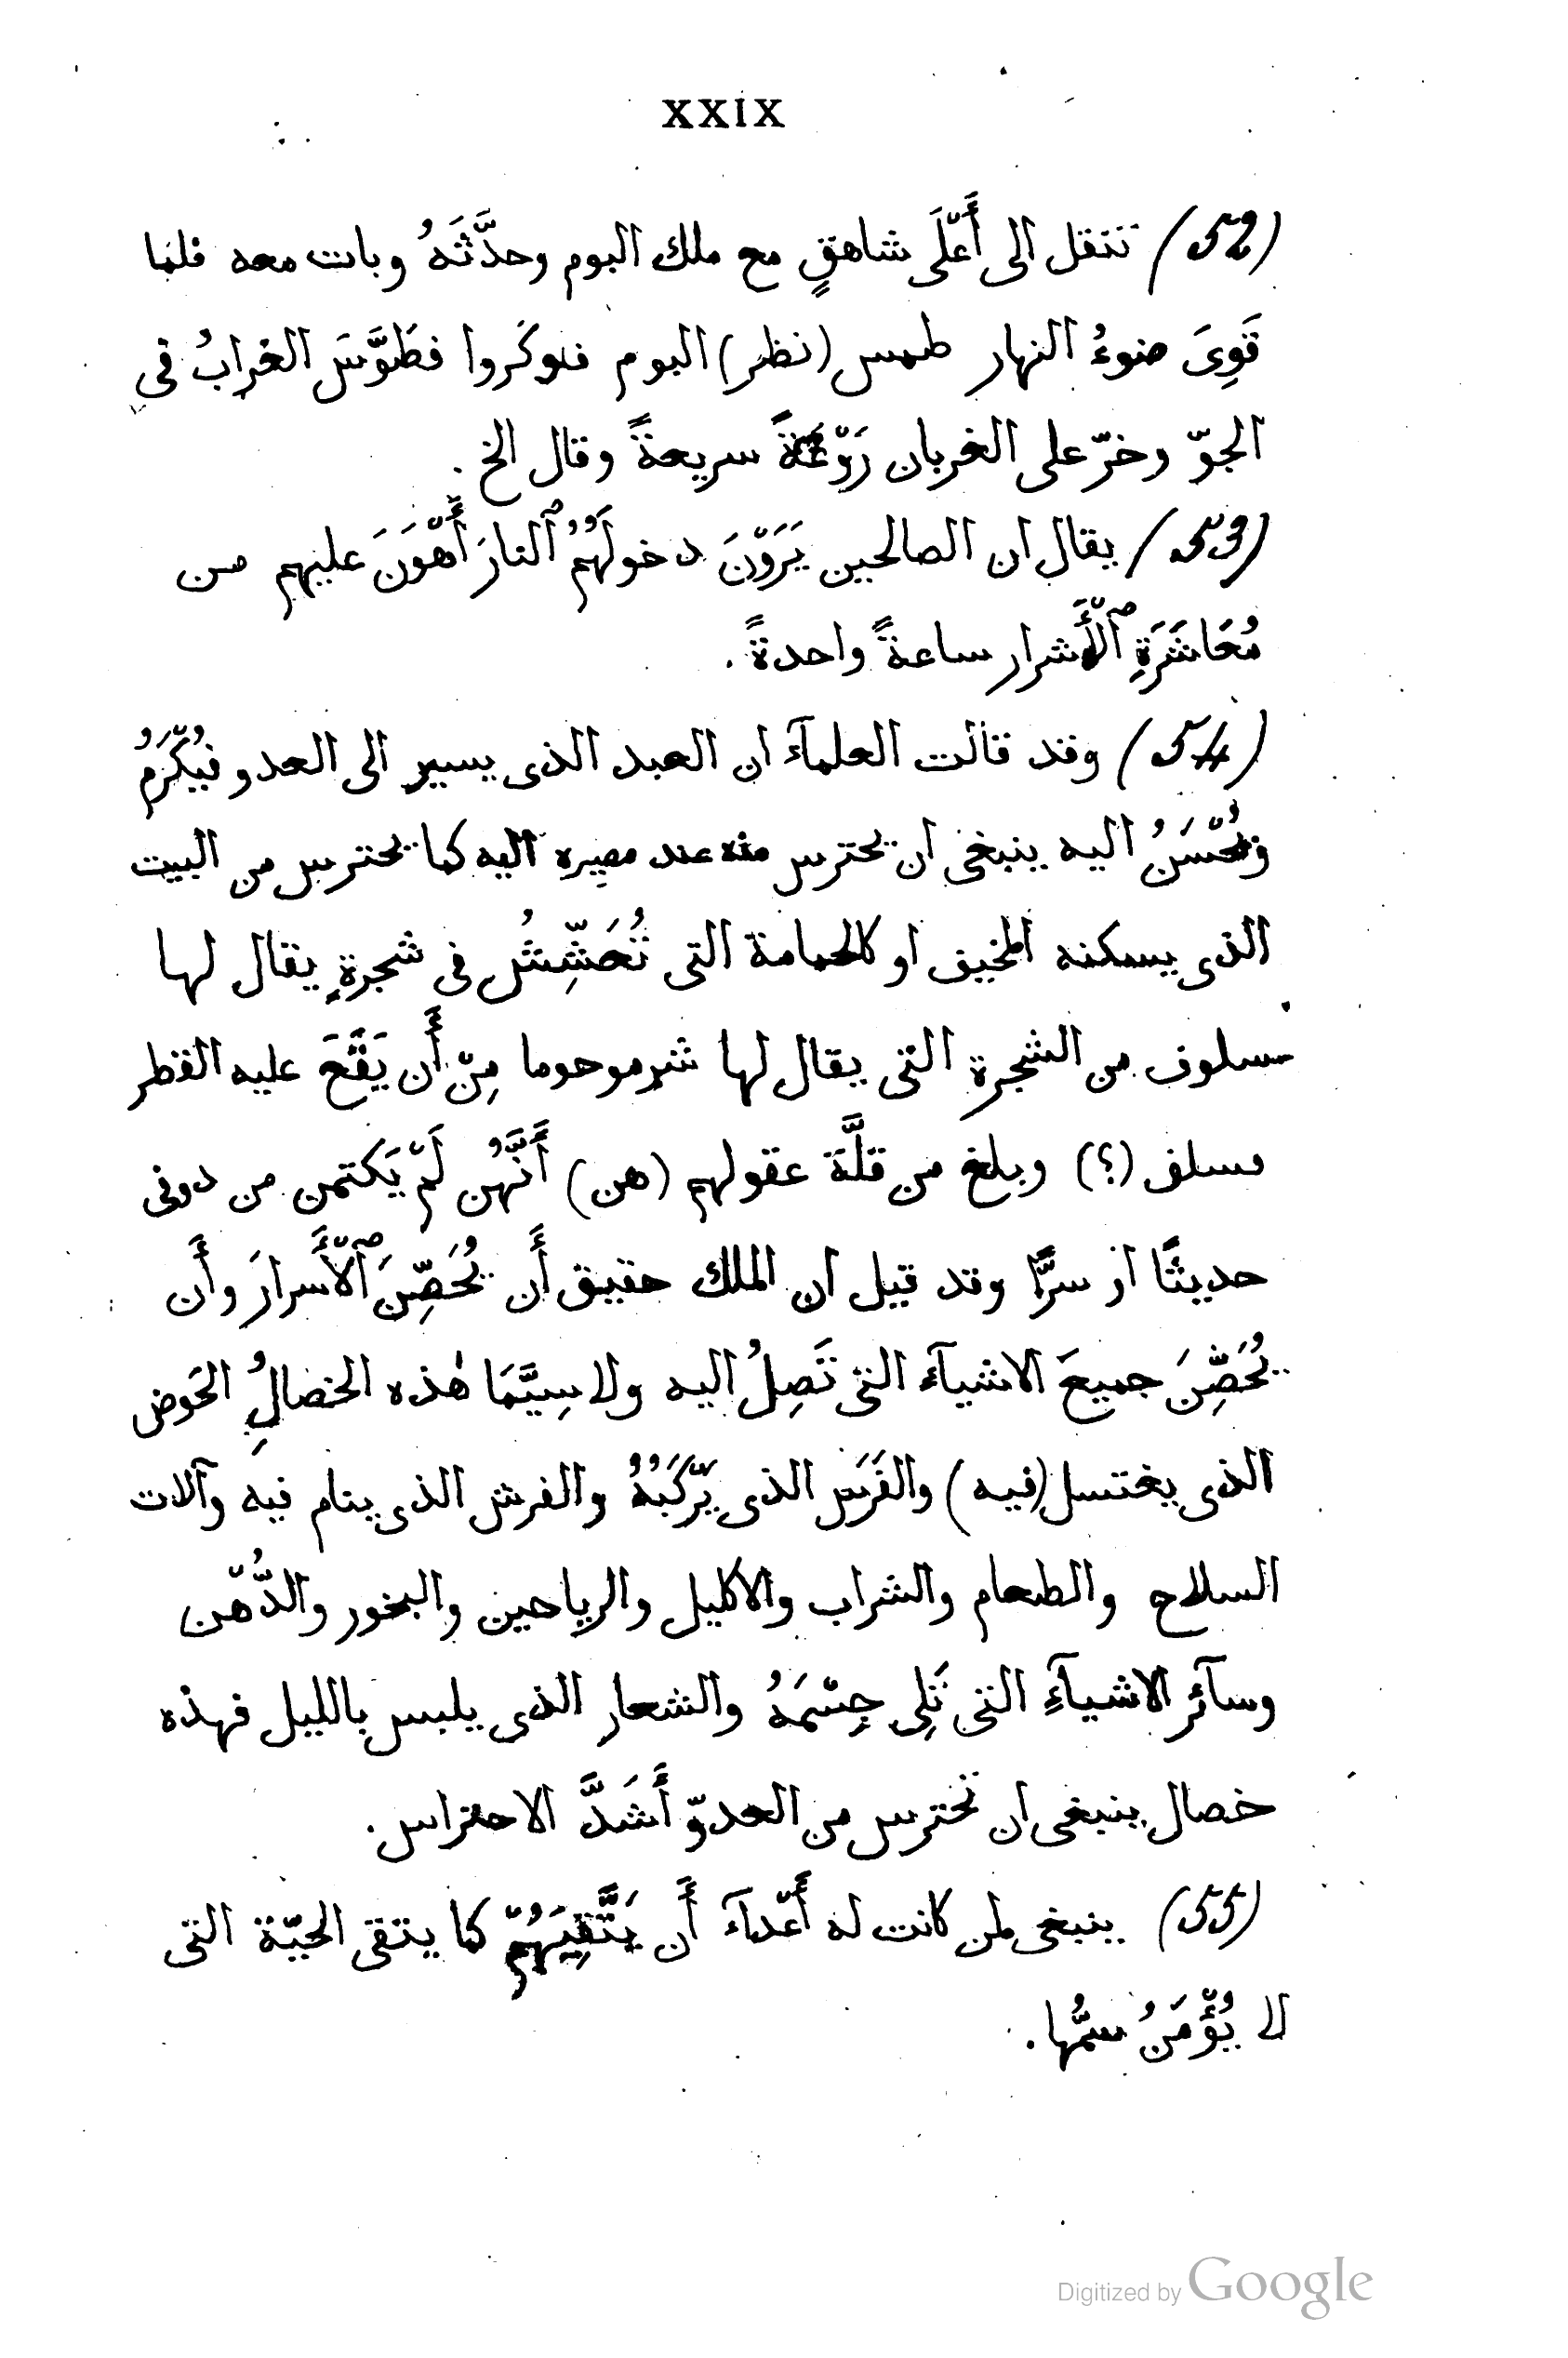 XXIX
(52) تنتقل الى أَعْلَى شاهقٍ مع ملك البوم وحدَّثَهُ وبات معه فلما
قَوِىَ ضوءُ النهار طمس (نظر) البوم فلوكَروا فطَوَّسَ الغرابُ فى
الجوّ وخرّ على الغربان رَوْغَةً سريعةً وقال الخ .
(53) يقال ان الصالحين يَرَوْنَ دخولَهُمُ ٱلنارَ أَهْوَنَ عليهم من
مُعَاشَرَةِ ٱلْأَشرار ساعةً واحدةً .
(54) وقد قالت العلمآء ان العبد الذى يسير الى العدو فيُكْرَمُ
ويُحْسَنُ اليه ينبغى ان يحترس منه عند مصيره اليه كما يحترس من البيت
الذى يسكنه المخيف او كالحمامة التى تُعَشِّشُ فى شجرةٍ يقال لها
سلوف من الشجرة التى يقال لها شرموحوما مِنْ أَن يَقَعَ عليه القطر
سلف (؟) وبلغ من قلَّة عقولهم (هن) أَنَّهُن لَمْ يَكتمن من دونى
حديثًا او سرًّا وقد قيل ان الملك حقيق أَن يُحَصِّنَ ٱلْأَسرارَ وأَن
يُحَصِّنَ جميعَ الاشيآءَ التى تَصِلُ اليه ولا سِيَّمَا هٰذه الخصالُِ الحَوض
الذى يغتسل (فيه) والفَرَس الذى يَرْكَبُهُ والفرش الذى ينام فيه وآلات
السلاح والطعام والشراب والاكليل والرياحين والبخور والدُّهْن
وسآئر الاشيآءِ التى تَلِى جِسْمَهُ والشعار الذى يلبس بالليل فهذه
خصال ينبغى ان تحترس من العدوّ أَشَدَّ الاحتراس.
(55) ينبغى لمن كانت له أَعْدآءَ أَن يَتَّقِيَهُمْ كما يتقى الحيّة التى
لا يُؤْمَنُ سمُّها .
Digitized by Google